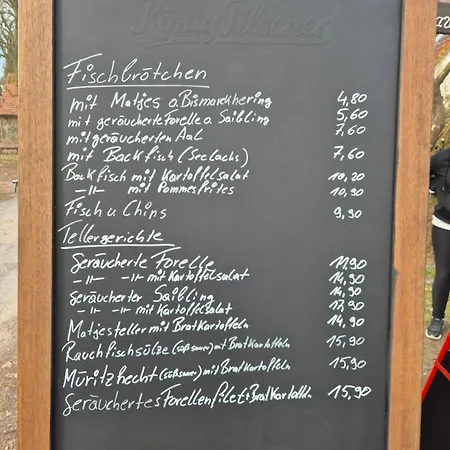 König Pilsener
Fischbrötchen
mit Matjes o. Bismarckhering 4,80
mit geräucherte Forelle o. Saibling 5,60
mit geräucherten Aal 7,60
mit Backfisch (Seelachs) 7,60
Backfisch mit Kartoffelsalat 10,20
-11- mit Pommesfrites 10,90
Fisch u. Chips 9,90
Tellergerichte
Geräucherte Forelle 11,90
-11- -11- mit Kartoffelsalat 14,90
Geräucherter Saibling 14,90
-11- -11- mit Kartoffelsalat 17,90
Matjesteller mit Bratkartoffeln 14,90
Rauchfischsülze (süßsauer) mit Bratkartoffeln 15,90
Müritzhecht (süßsauer) mit Bratkartoffeln 15,90
Geräuchertes Forellenfilet + Bratkartoffeln 15,90